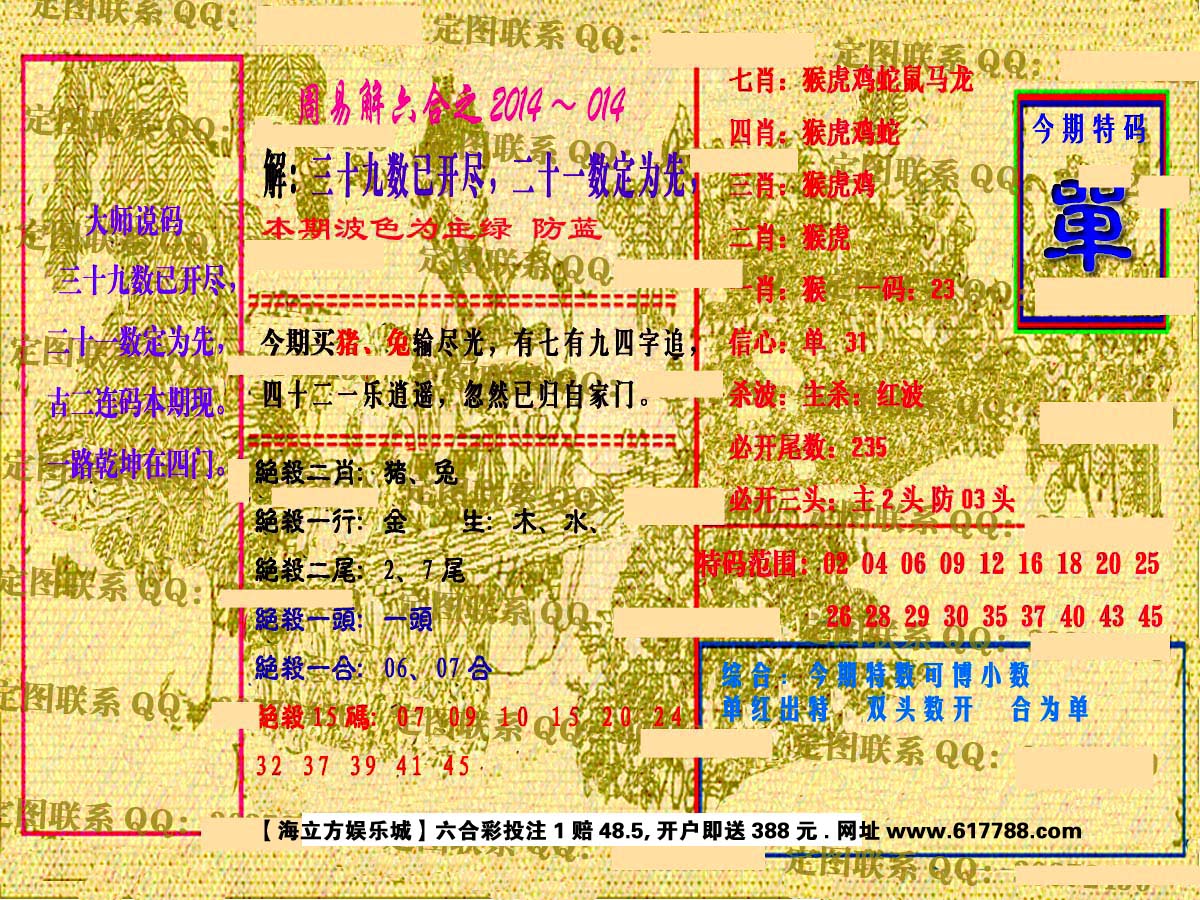 周易解六合之2014～014
大师说码
三十九数已开尽,
二十一数定为先,
古二连码本期现。
一路乾坤在四门。
解:三十九数已开尽,二十一数定为先,
本期波色为主绿 防蓝
今期买猪、兔输尽光，有七有九四字追,
四十二一乐逍遥，忽然已归自家门。
絕殺二肖: 猪、兔
絕殺一行: 金 生: 木、水、
絕殺二尾: 2、7尾
絕殺一頭: 一頭
絕殺一合: 06、07合
絕殺15碼: 07 09 10 15 20 24
32 37 39 41 45
七肖: 猴虎鸡蛇鼠马龙
四肖: 猴虎鸡蛇
三肖: 猴虎鸡
二肖: 猴虎
一肖: 猴 一码: 23
信心: 单 31
杀波: 主杀: 红波
必开尾数: 235
必开三头: 主2头防03头
特码范围: 02 04 06 09 12 16 18 20 25
26 28 29 30 35 37 40 43 45
今期特码
單
综合: 今期特数可博小数
单红出特 双头数开 合为单
【海立方娱乐城】六合彩投注1赔48.5,开户即送388元.网址www.617788.com
定图联系QQ:
定图联系QQ:
定图联系QQ:
定图联系QQ:
定图联系QQ:
定图联系QQ:
定图联系QQ:
定图联系QQ:
定图联系QQ:
定图联系QQ:
定图联系QQ: